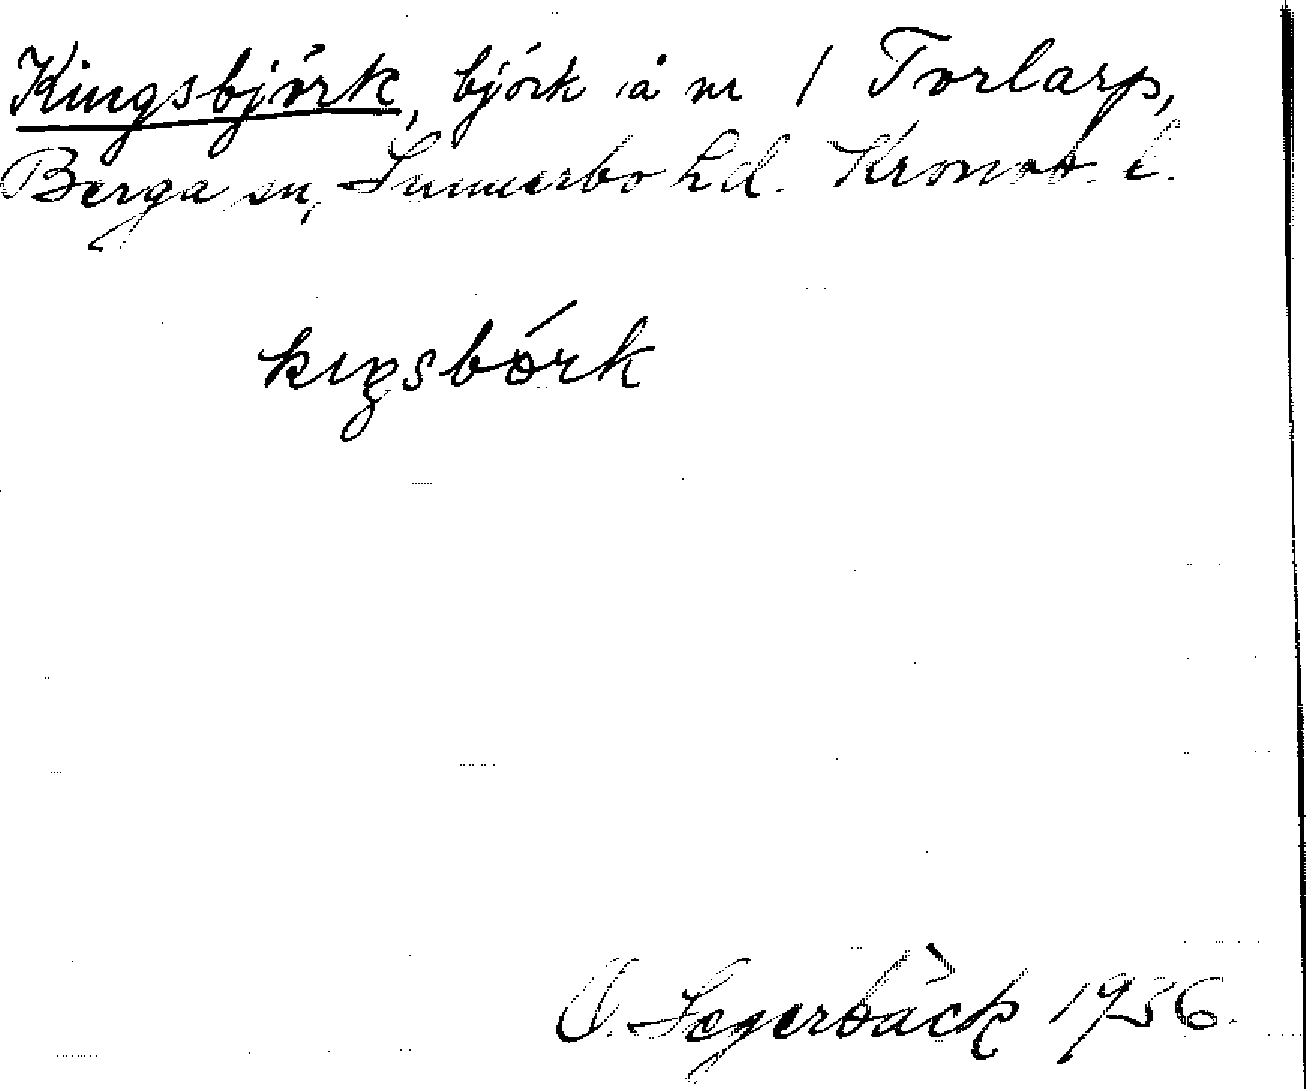 Kingsbjörk, björk å nr 1 Torlarp,
Berga sn, Sunnerbo hd. Kronob. l.
kıŋsbörk
O. Segerbäck 1936.